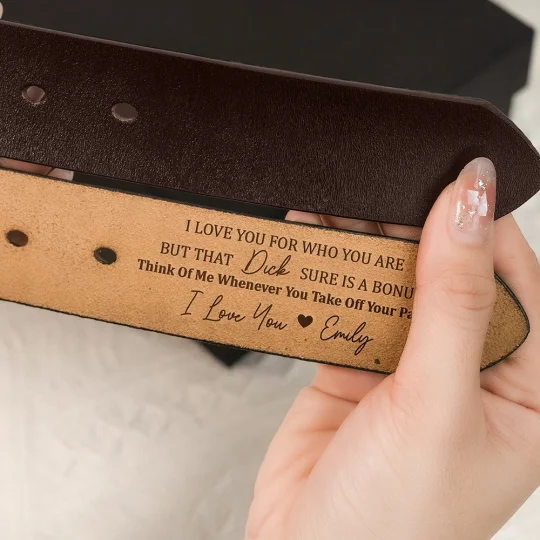 I LOVE YOU FOR WHO YOU ARE
BUT THAT Dick SURE IS A BONU
Think Of Me Whenever You Take Off Your Pa
I Love You ♥ Emily